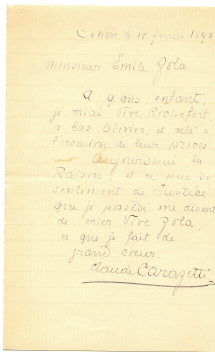 le 10 février 1898
Monsieur Emile Zola
A 9 ans enfant,
je criai Vive Rochefort,
à bas Olivier, et cela à
l'occasion de leur procès
Aujourd'hui la
Raison, et ce peu de
sentiment de Justice
que je possède me disent
de crier Vive Zola,
ce que je fait de
grand coeur.
Claude